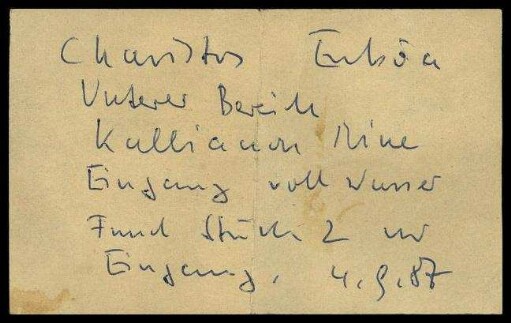 Charistos Euböa
Unterer Bereich
Kallianon Mine
Eingang voll Wasser
Fund Stück 2 vor
Eingang, 4.9.87